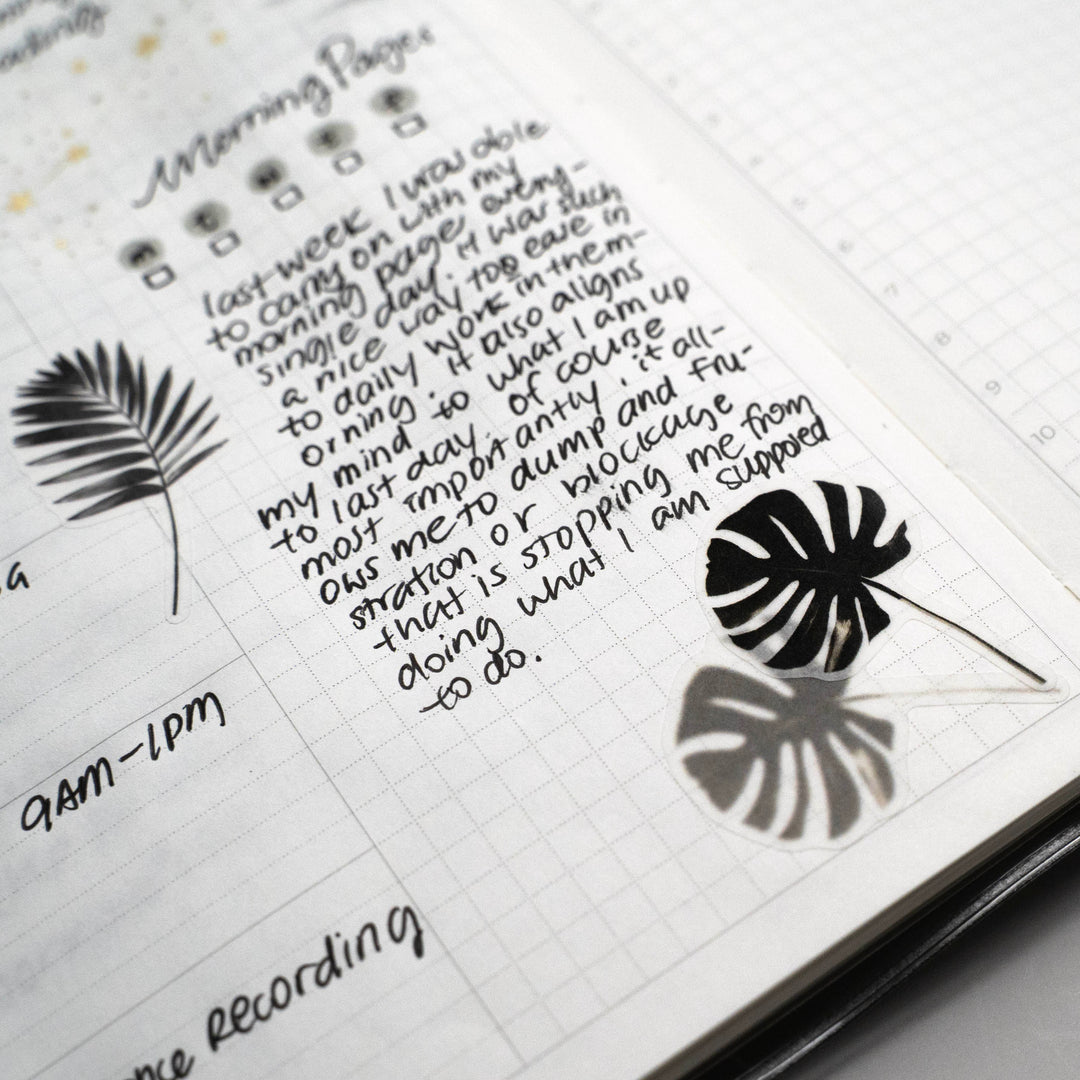 Morning Pages
M T W T F
last week I was able
to carry on with my
morning page every-
single day. it was such
a nice way too ease in
to daily work in them-
orning. it also aligns
my mind to what I am up
to last day. of course
most importantly, it all-
ows me to dump and fru-
stration or blockage
that is stopping me from
doing what I am suppoied
to do.
9AM-1PM
Recording
7
8
9
10